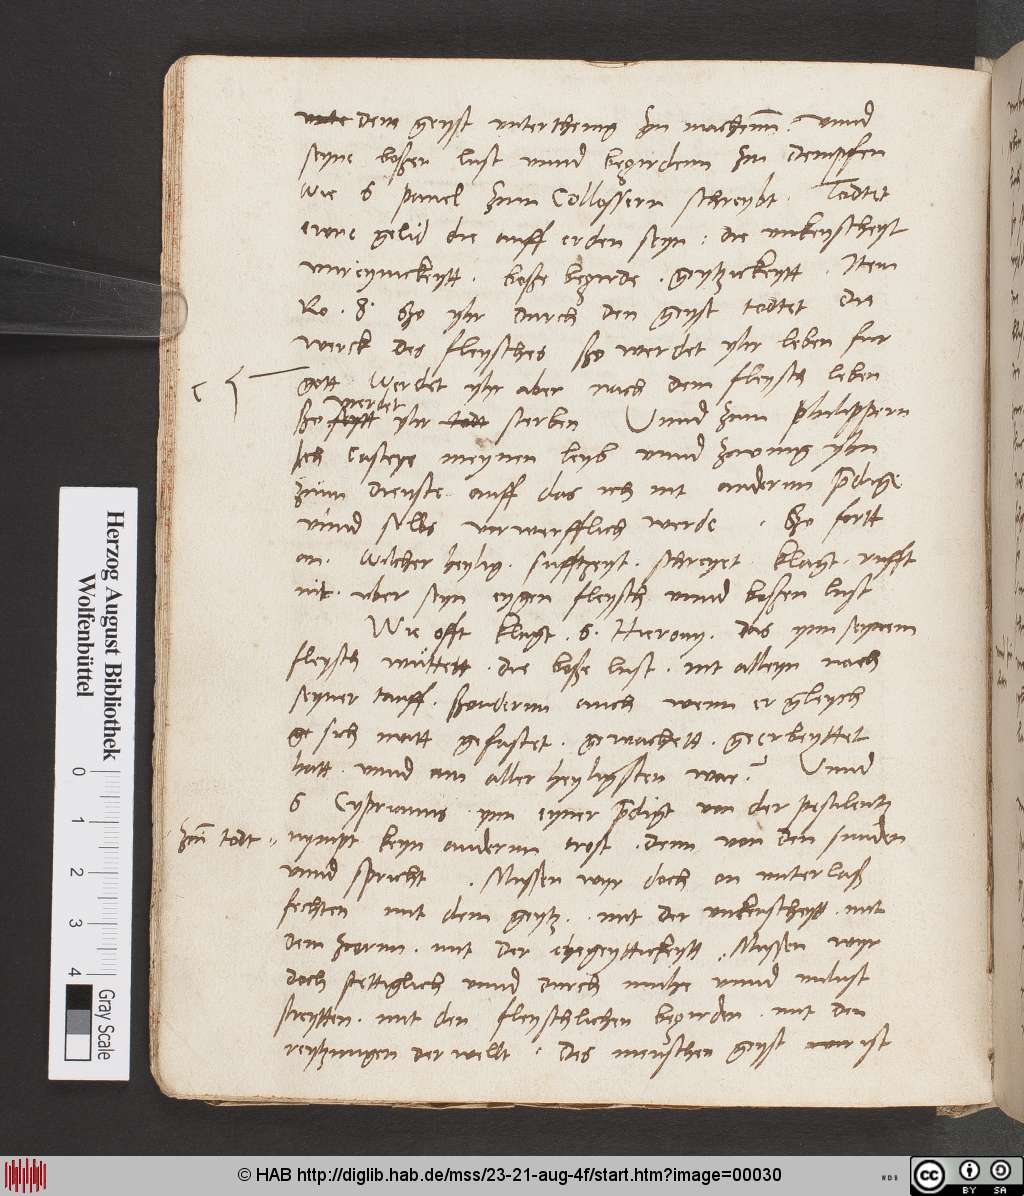 unte dem geyst unterthenig zu machenn. Unnd
seyne boßen lust unnd begirdenn zu dempffen
wie S pauel zun Collossern schreybt. Todtet
ewre gelid die auff erden seyn : die unkeuscheyt
unreynickeytt . boße begirde . geytzickeytt . Item
Ro . 8. Szo yhr durch den geyst todtet die
werck des fleysches szo werdet yhr leben fur
gott. Werdet yhr aber nach dem fleysch leben
werdet
szo seytt yhr todt sterben Unnd zun philippern
Ich casteye meynen leyb unnd zwing yhn
zum dienste auff das ich nit andernn predige
unnd selbs vorwerfflich werde . Szo fortt
an. Wilcher heylig. sufftzeyt. schreyet. klagt. rufft
nit. uber seyn eygen fleysch unnd boßen lust
Wie offt klagt .S. Hierony. das ynn seynem
fleysch wuttett . die boße lust . nit alleyn noch
seyner tauff. szondernn auch wenn er gleych
ge sich matt gefastet . gewachett . geerbeyttet
hatt . unnd am aller heyligsten war? Unnd
S Cyprianus . ynn eyner predigt von der pestilentz
zum todt
nympt keyn andernn trost . denn von den sunden
unnd spricht . Mussen wyr doch on unterlaß
fechten mit dem geytz . mit der unkeuscheytt . mit
dem zornn . mit der ehegeyttickeytt . Mussen wyr
doch stettiglich unnd durch muhe unnd unlust
streytten . mit den fleyschlichen begirden . mit den
reytzungen der wellt : Des menschen geyst wir ist
Herzog August Bibliothek
Wolfenbüttel
0 1 2 3 4
Gray Scale
© HAB http://diglib.hab.de/mss/23-21-aug-4f/start.htm?image=00030
WDB
cc BY SA